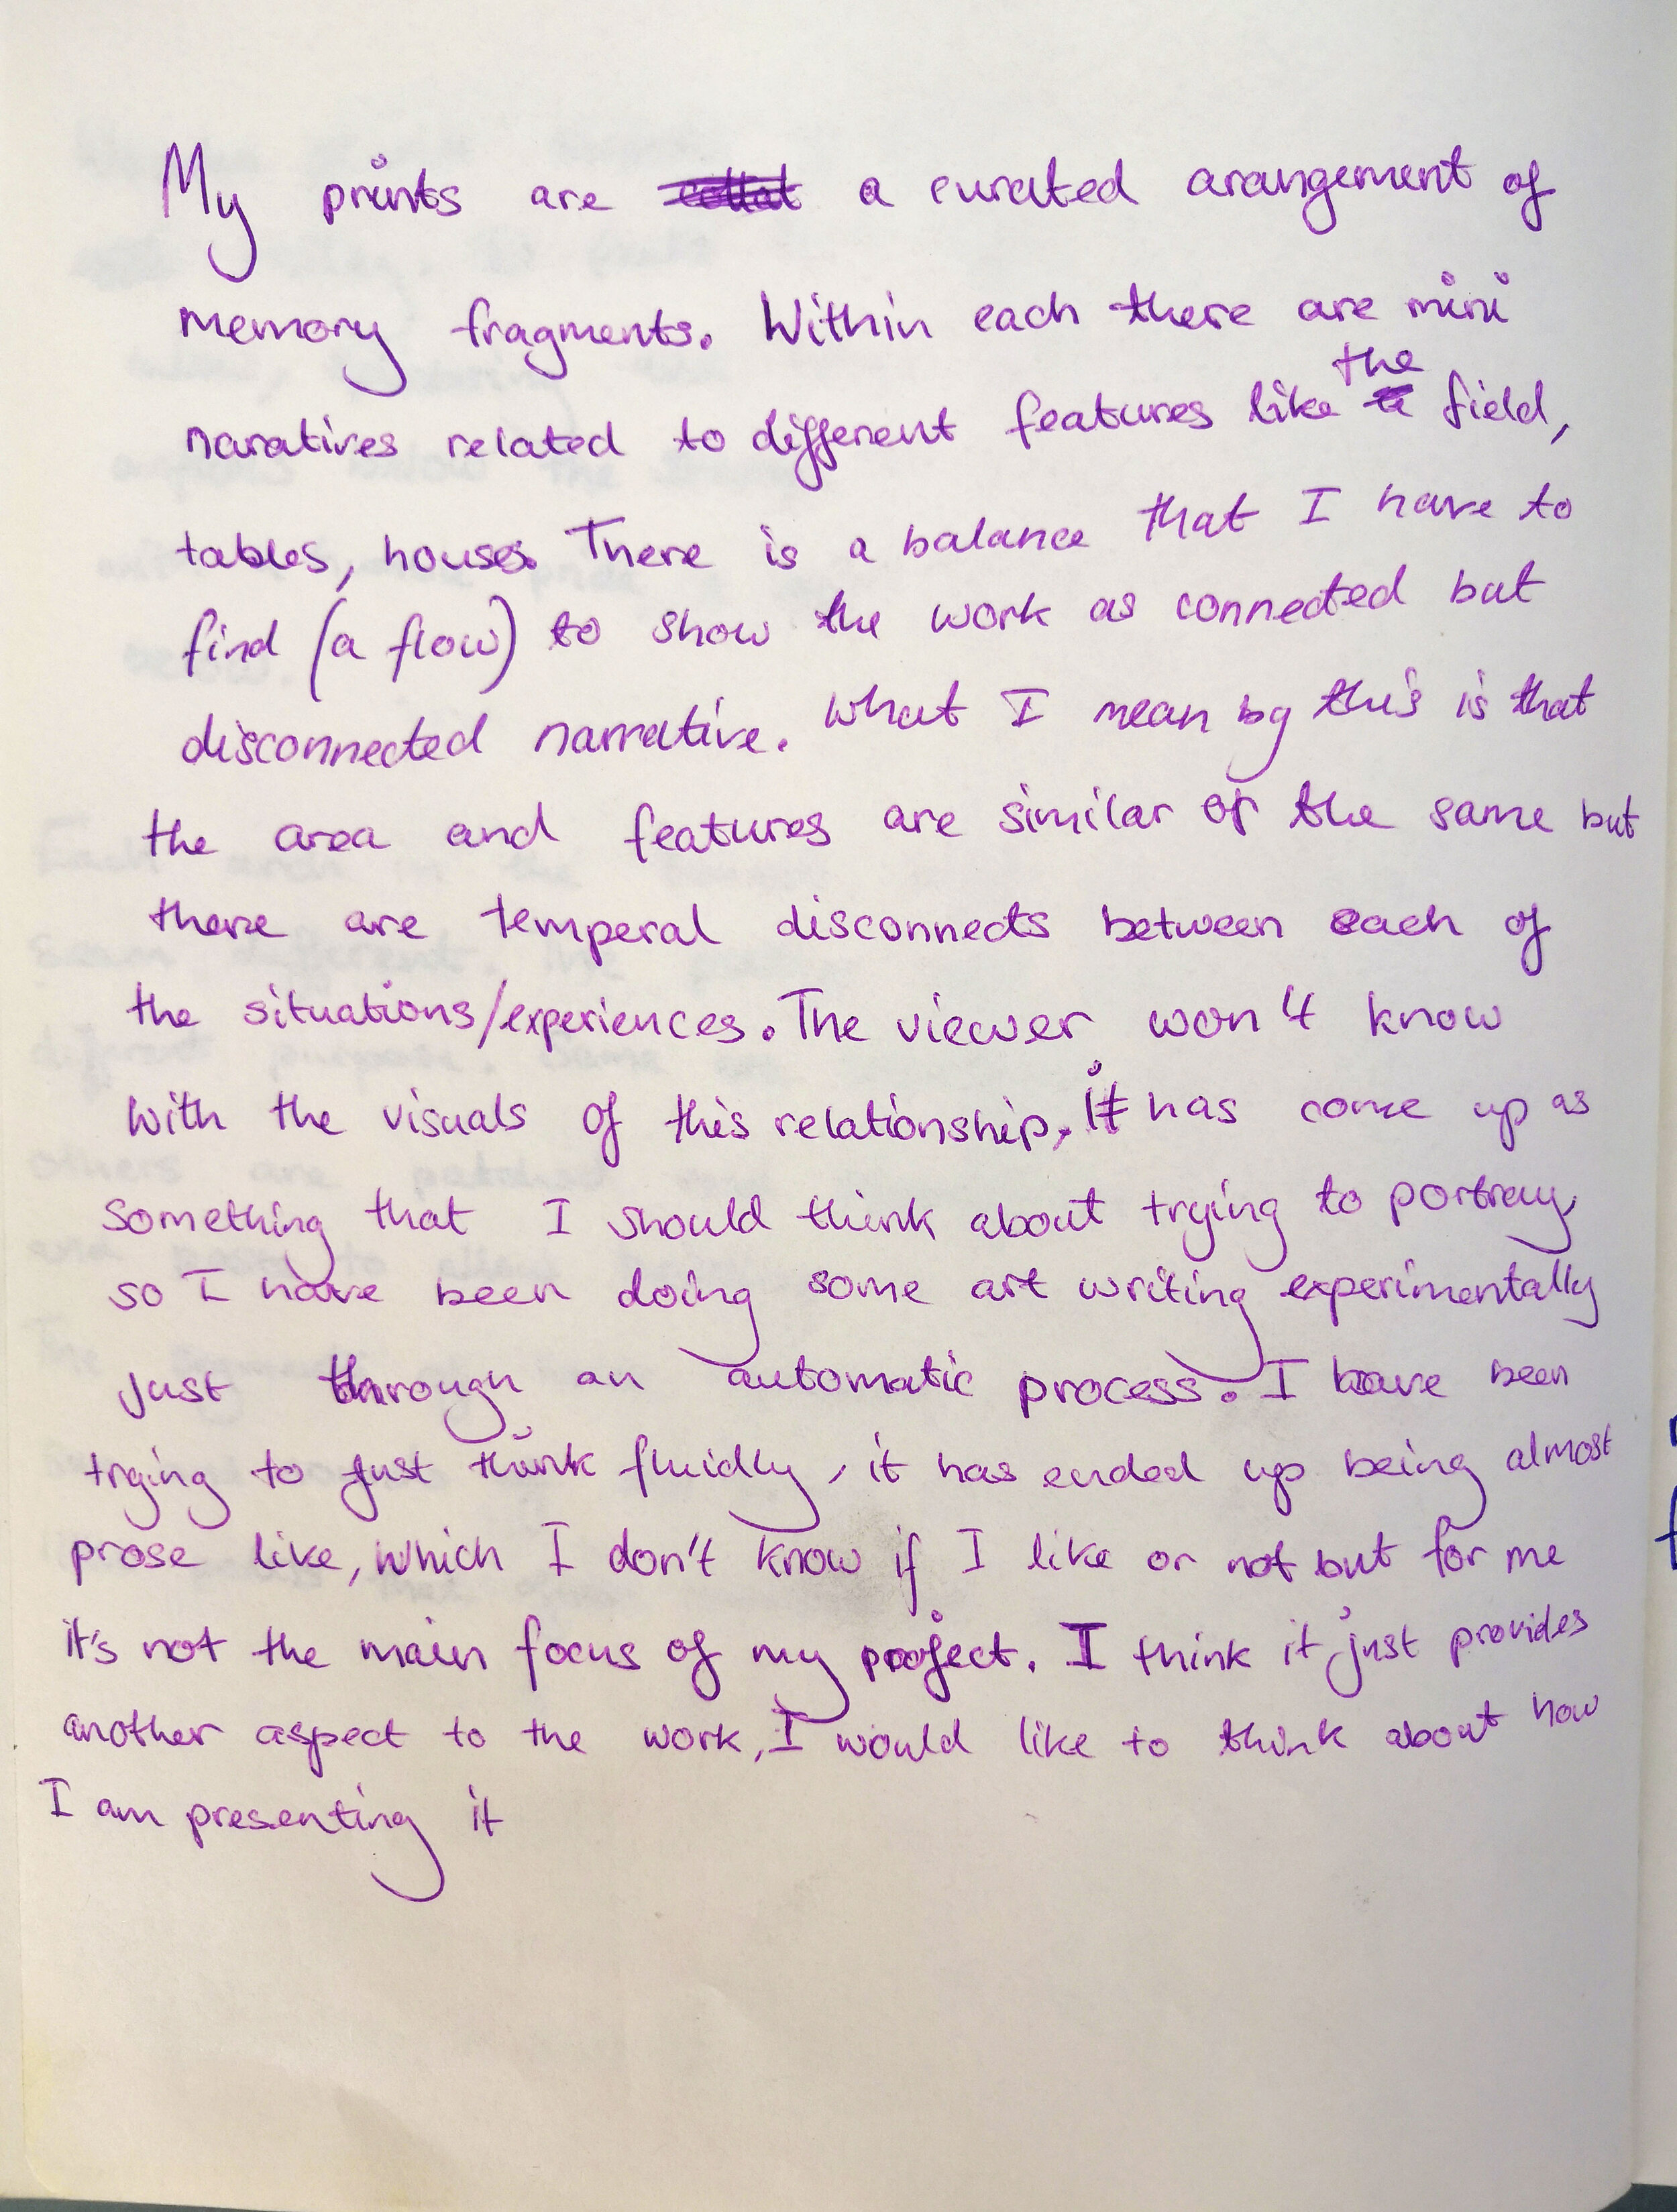 My prints are a curated arangement of
memory fragments. Within each there are mini
naratives related to different features like the field,
tables, houses. There is a balance that I have to
find (a flow) to show the work as connected but
disconnected narrative. What I mean by this is that
the area and features are similar or the same but
there are temperal disconnects between each of
the situations/experiences. The viewer won't know
with the visuals of this relationship, it has come up as
something that I should think about trying to portray,
so I have been doing some art writing experimentally
just through an automatic process. I have been
trying to just think fluidly, it has ended up being almost
prose like, which I don't know if I like or not but for me
it's not the main focus of my project. I think it just provides
another aspect to the work, I would like to think about how
I am presenting it